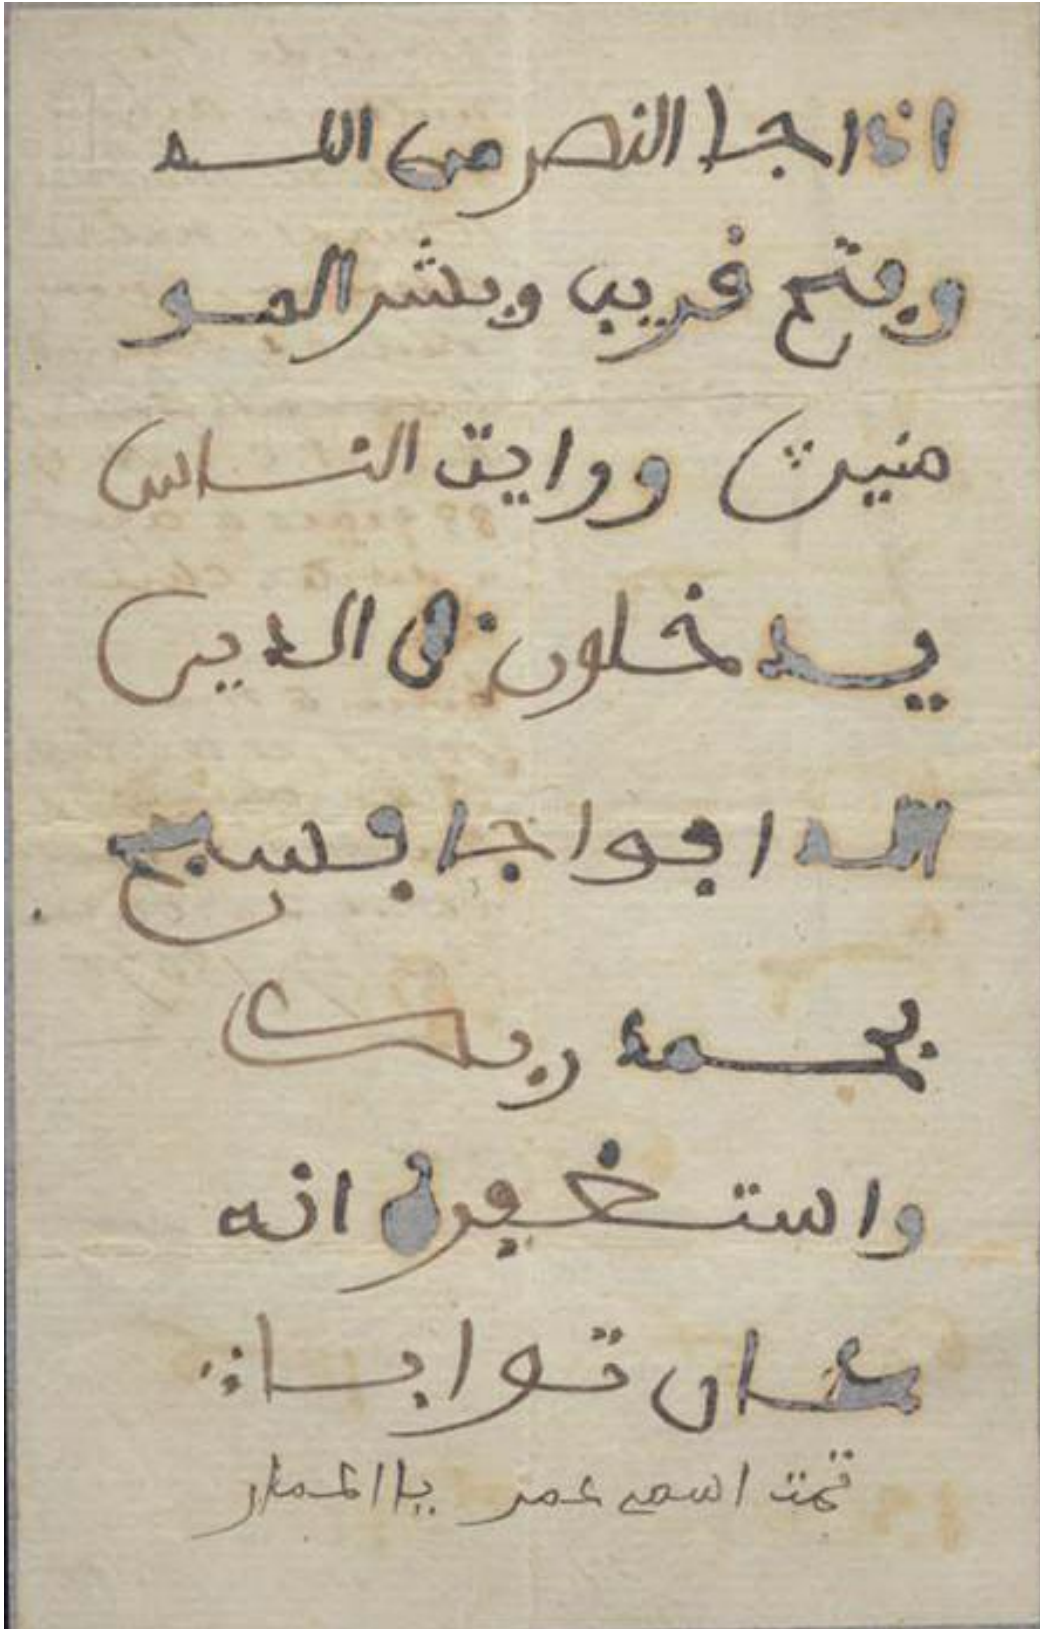 اذا جا النصر من الله
وفتح فريب وبشر المو
منين ورايت الناس
يدخلون في الدين
الله افواجا فسبح
بحمد ربك
واستغفره انه
كان توابا
تمت اسمي عمر